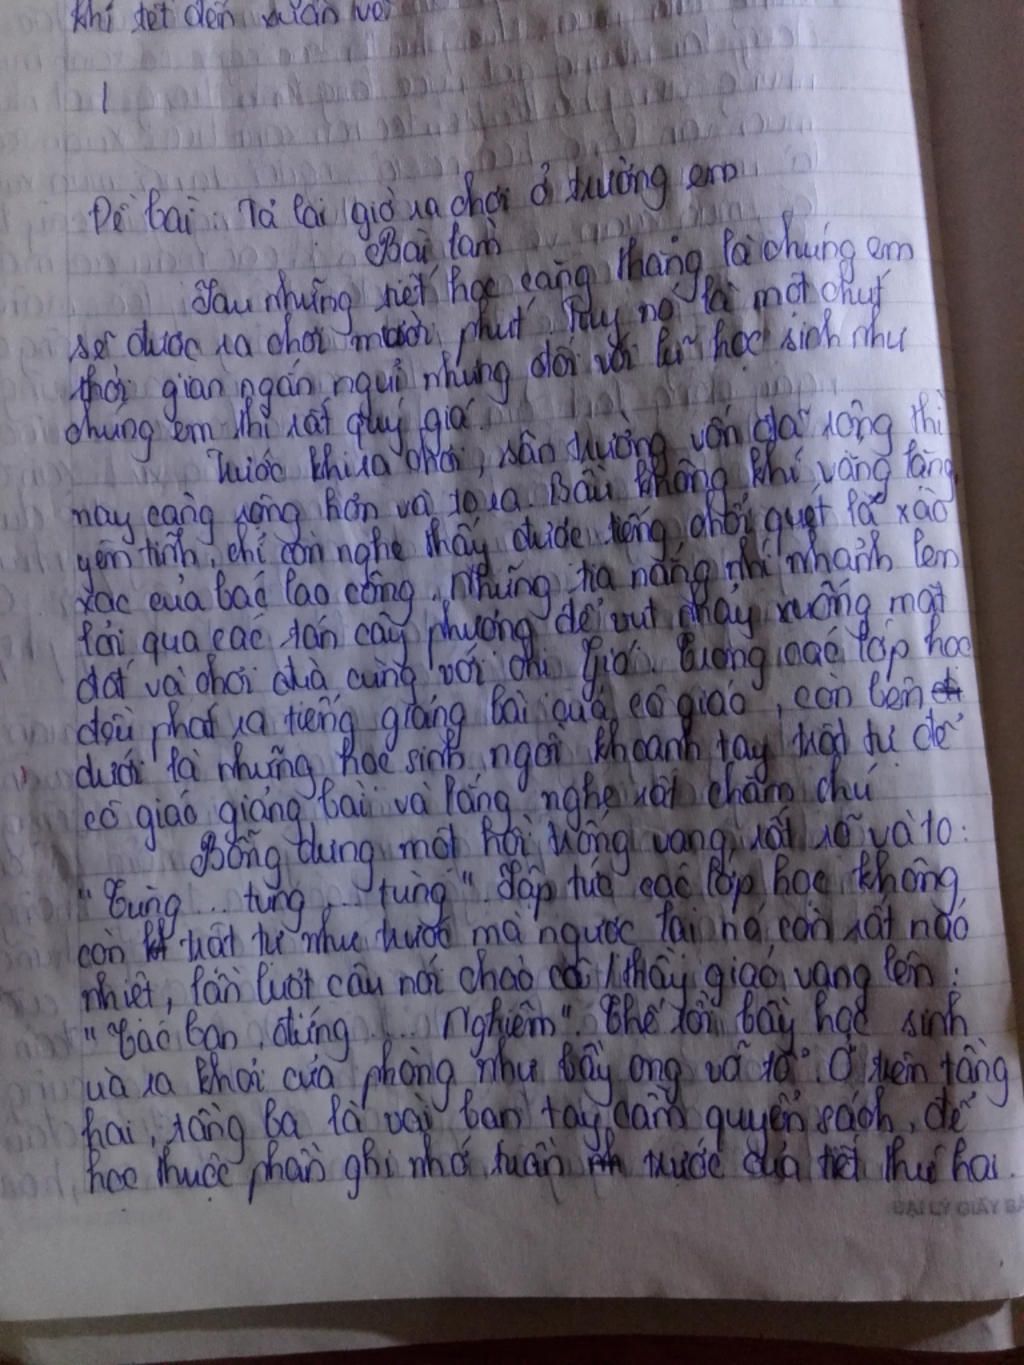 khi tết đến xuân về
1
Đề bài: Tả lại giờ ra chơi ở trường em
Bài làm
Sau những tiết học căng thẳng là chúng em
sẽ được ra chơi mười phút. Tuy nó là một chút
thời gian ngắn ngủi nhưng đối với lũ học sinh như
chúng em thì rất quý giá.
Trước khi ra chơi, sân trường vốn đã rộng thì
nay càng rộng hơn và to ra. Bầu không khí vắng lặng,
yên tĩnh, chỉ còn nghe thấy được tiếng chổi quét lá xào
xạc của bác lao công. Những tia nắng nhí nhảnh len
lỏi qua các tán cây phượng để vụt chạy xuống mặt
đất và chơi đùa cùng với chị gió. Trong các lớp học
đều phát ra tiếng giảng bài của cô giáo, còn bên
dưới là những học sinh ngồi khoanh tay trật tự để
cô giáo giảng bài và lắng nghe rất chăm chú
Bỗng dưng một hồi trống vang rất rõ và to:
"Tùng... tùng... tùng". Lập tức các lớp học không
còn trật tự như trước mà ngược lại nó còn rất náo
nhiệt, lần lượt câu nói chào cô / thầy giáo vang lên:
"Các bạn, đứng .... Nghiêm". Thế rồi bầy học sinh
ùa ra khỏi cửa phòng như bầy ong vỡ tổ. Ở trên tầng
hai, tầng ba là vài bạn tay cầm quyển sách, để
học thuộc phần ghi nhớ tuần trước của tiết thứ hai.
ĐẠI LÝ GIẤY BÃ